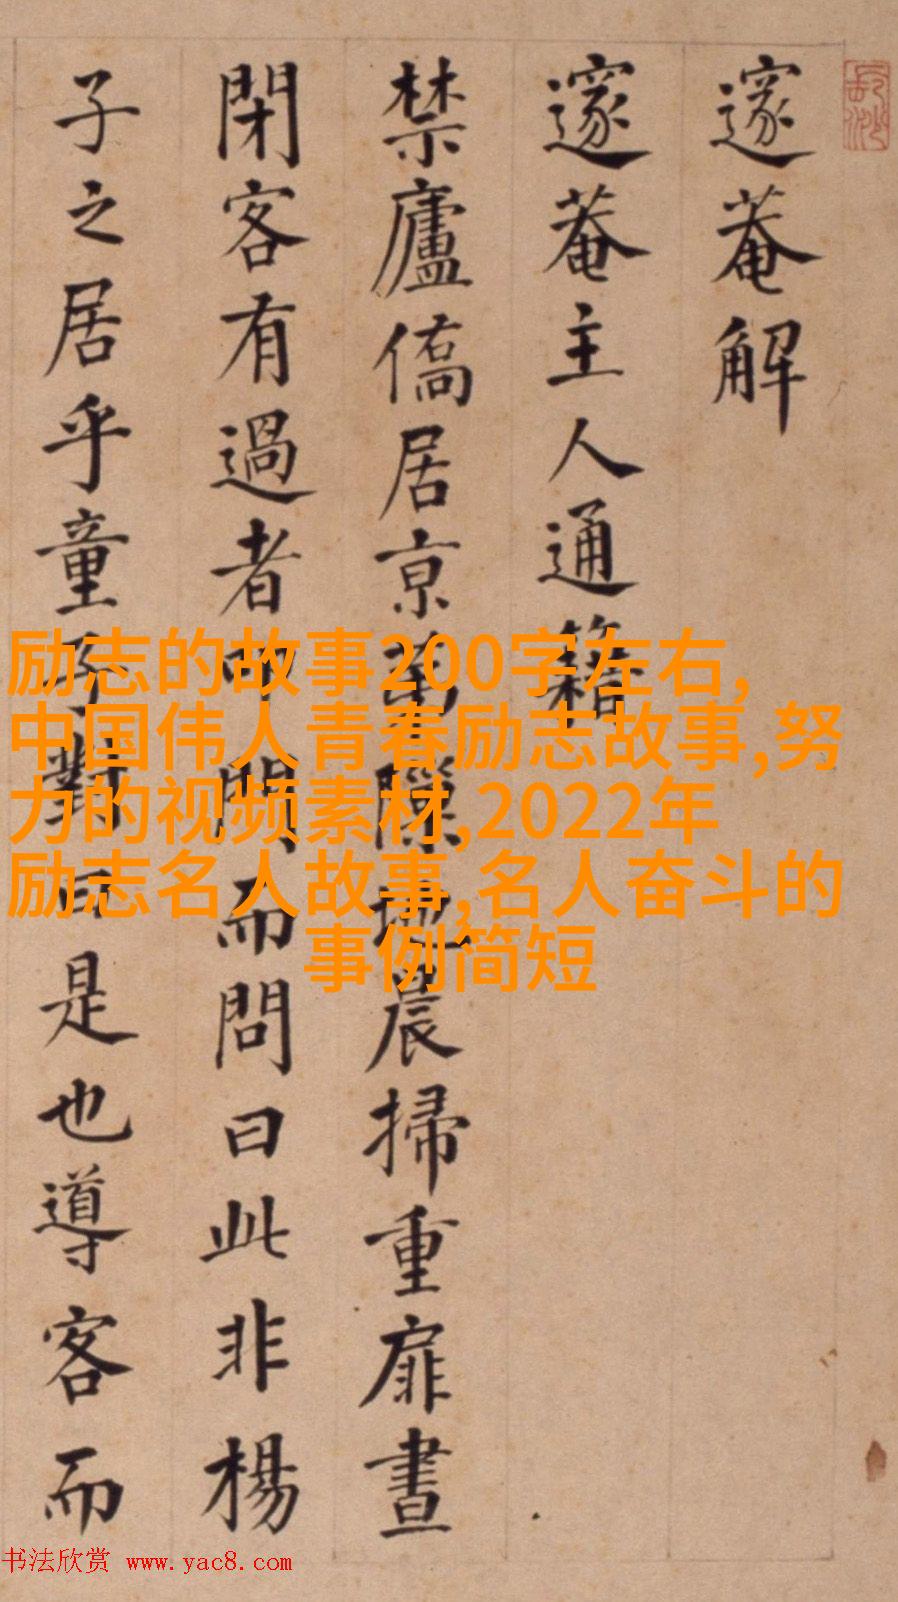 邃菴解
邃菴主人通籍
禁廬僑居京萬隙地晨掃重扉晝
閉客有過者叩門而問曰此非楊
子之居乎童子對曰是也導客而
励志的故事200字左右,
中国伟人青春励志故事,努
力的视频素材,2022年
励志名人故事,名人奋斗的
事例简短
书法欣赏 www.yac8.com